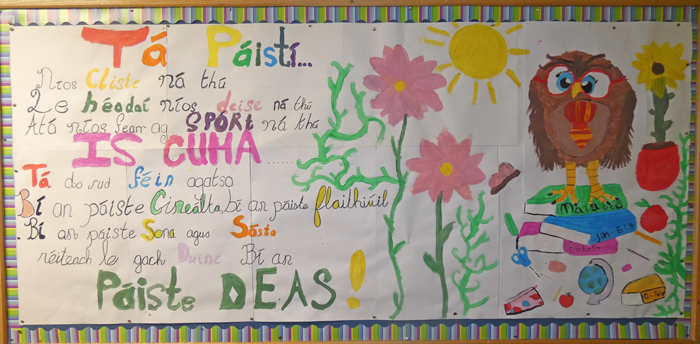 Tá Páistí...
Níos Cliste ná thú
Le héadaí níos deise ná thú
Atá níos fearr ag SPÓRT ná thú
IS CUMA......
Tá do rud féin agatsa
Bí an páiste Cineálta, bí an páiste flaithiúil
Bí an páiste Sona agus Sásta
réiteach le gach Duine... Bí an
Páiste DEAS!